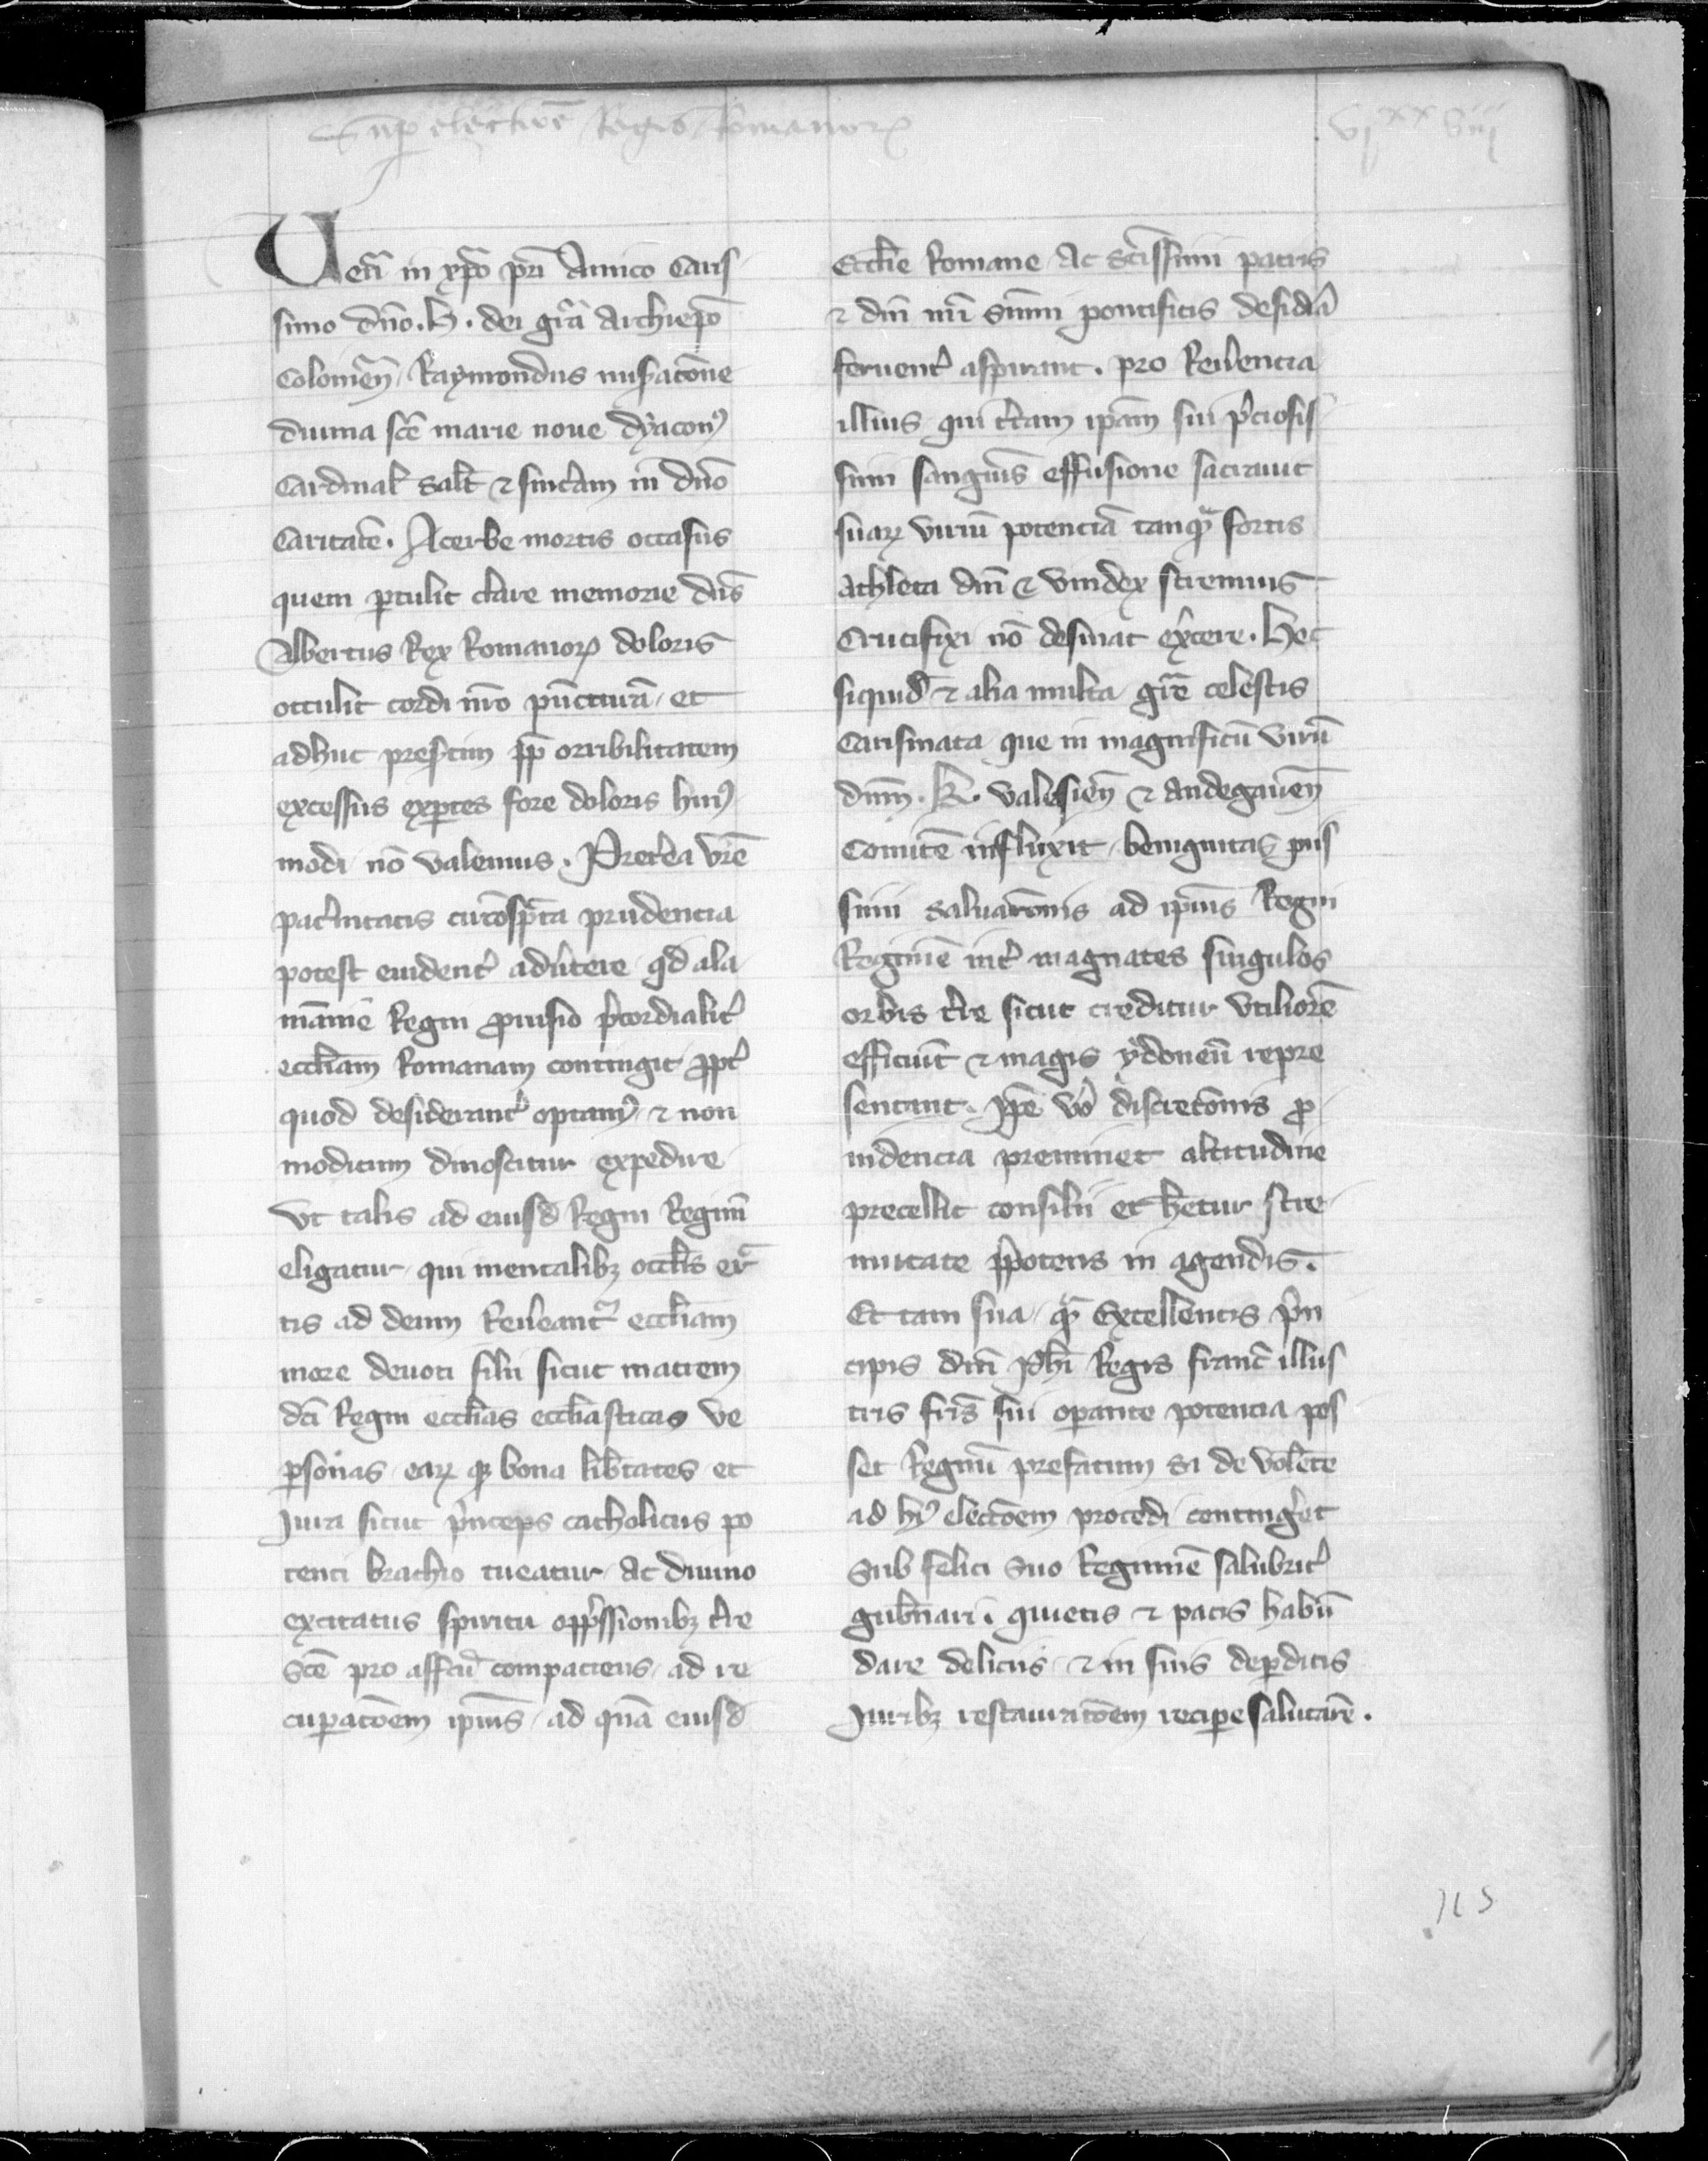 Sup electiōe Regis Romanorꝝ
vjxx viij
Ven̄ in xp̄o pr̄i Amico Caris
simo dn̄o . H . dei gr̄a Archiep̄o
Colonien̄ Raymondus miẜacōne
diuina sc̄e marie noue dyaconꝰ
Cardinal̄ sal̄t ⁊ sinc̓am in dn̄o
Caritatē . Acerbe mortis occasus
quem ꝑtulit clare memorie dn̄s
Albertus Rex Romanorꝝ doloris
occulit cordi nr̄o pūcturā / et
adhuc presẜtim ꝓp orribilitatem
excessus exꝑtes fore doloris huiꝰ
modi nō valemus . Pretea vr̄e
pat̓nitatis circōsp̄ta prudencia
potest euident̓ adũtere qd̄ ala
mānie Regni ꝓuisio p̓cordialit̓
eccl̄iam Romanam contingit ꝓpt̓
quod desiderant̓ optamꝰ ⁊ non
modicum dinoscitur expedire
Vt talis ad eiusd̄ Regni Regim̄
eligatur qui mentalibꝫ occl̄is er̄c
tis ad deum Reũeant̓ eccl̄iam
more deuoti filii sicut matrem
dc̄i Regni eccl̄ias eccl̄iasticas ve
ꝑsonas earꝝ qꝫ bona lib̄tates et
Iura sicut p̓nceps catholicus po
tenti brachio tueatur Ac diuino
excitatus spiritu opp̓ssionibꝫ t̓re
Sc̄e pro affcū compaciens / ad re
cuꝑacōem ip̄ius / ad quā eiusd̄
Eccl̄ie Romane Ac sc̄issimi patris
⁊ dn̄i nr̄i sūmi pontificis desid̓ia
feruent̓ aspirant . pro Reũencia
illius qui t̓ram ip̄am sui p̓ciosis
simi sanguīs effusione sacrauit
suarꝝ viriū potenciā tanqꝫ fortis
Athleta dn̄i ⁊ vindex strenuus
Crucifixi nō desinat ex̓cere . Hec
siquid̄ ⁊ alia multa gr̄e celestis
Carismata que in magnificū virū
dn̄m . K . valesien̄ ⁊ andegauen̄
Comitē influxit benignitas piis
simi saluatōnis ad ip̄ius Regni
Regimē int̓ magnates singulos
orbis t̓re sicut creditur vtiliorē
efficiūt ⁊ magis ydoneū repre
sentant . Ip̄e v̓o discretōnis ꝓ
uidencia preminet altitudine
precellit consilii et h̄etur stre
nuitate p̓potens in agendis .
Et tam sua qꝫ Excellentis p̓n
cipis dn̄i Ph̄i Regis franc̄ illus
tris fr̄is sui oꝑante potencia pos
set Regnū prefatum si de vol̄ete
ad hꝰ electōem procedi conting̓et
Sub felici Suo Regimine salubrit̓
gub̄nari . quietis ⁊ pacis habū
dare deliciis ⁊ in suis deꝑditis
Iuribꝫ restauracōem reciꝑe salutarē .
125